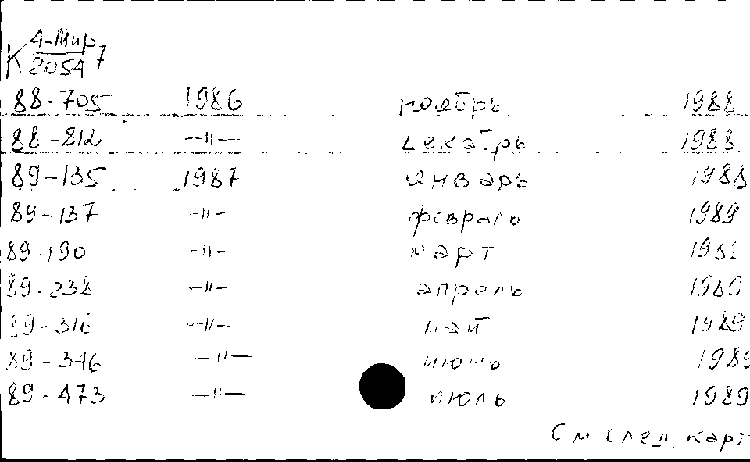 К 4-Мир 7
2054
88-705 1986 ноябрь 1988
88-812 —11— декабрь 1988
89-135 1987 январь 1988
89-137 -11- февраль 1989
89-190 -11- март
89-238 -11- апрель 1989
89-316 -11- май 1989
89-346 -11- июнь 1989
89-473 -11- июль 1989
См след. карт